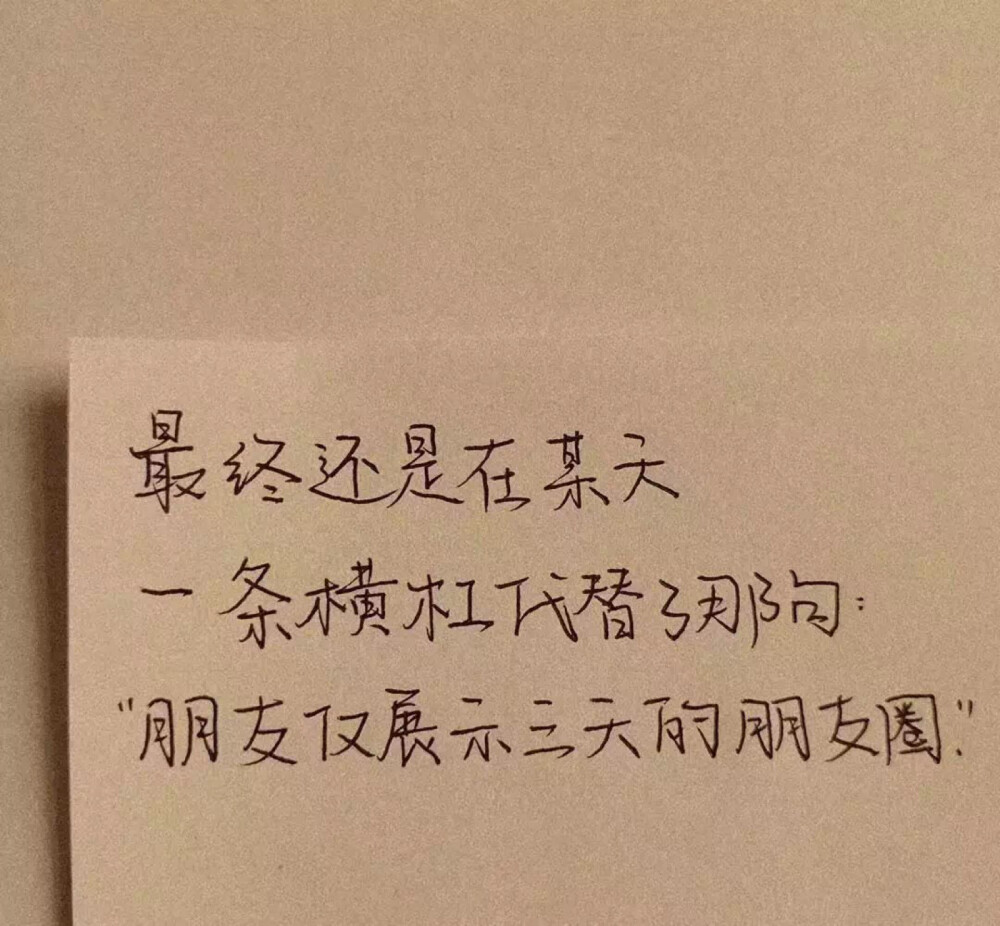 最终还是在某天
一条横杠代替了那句：
“朋友仅展示三天的朋友圈.”